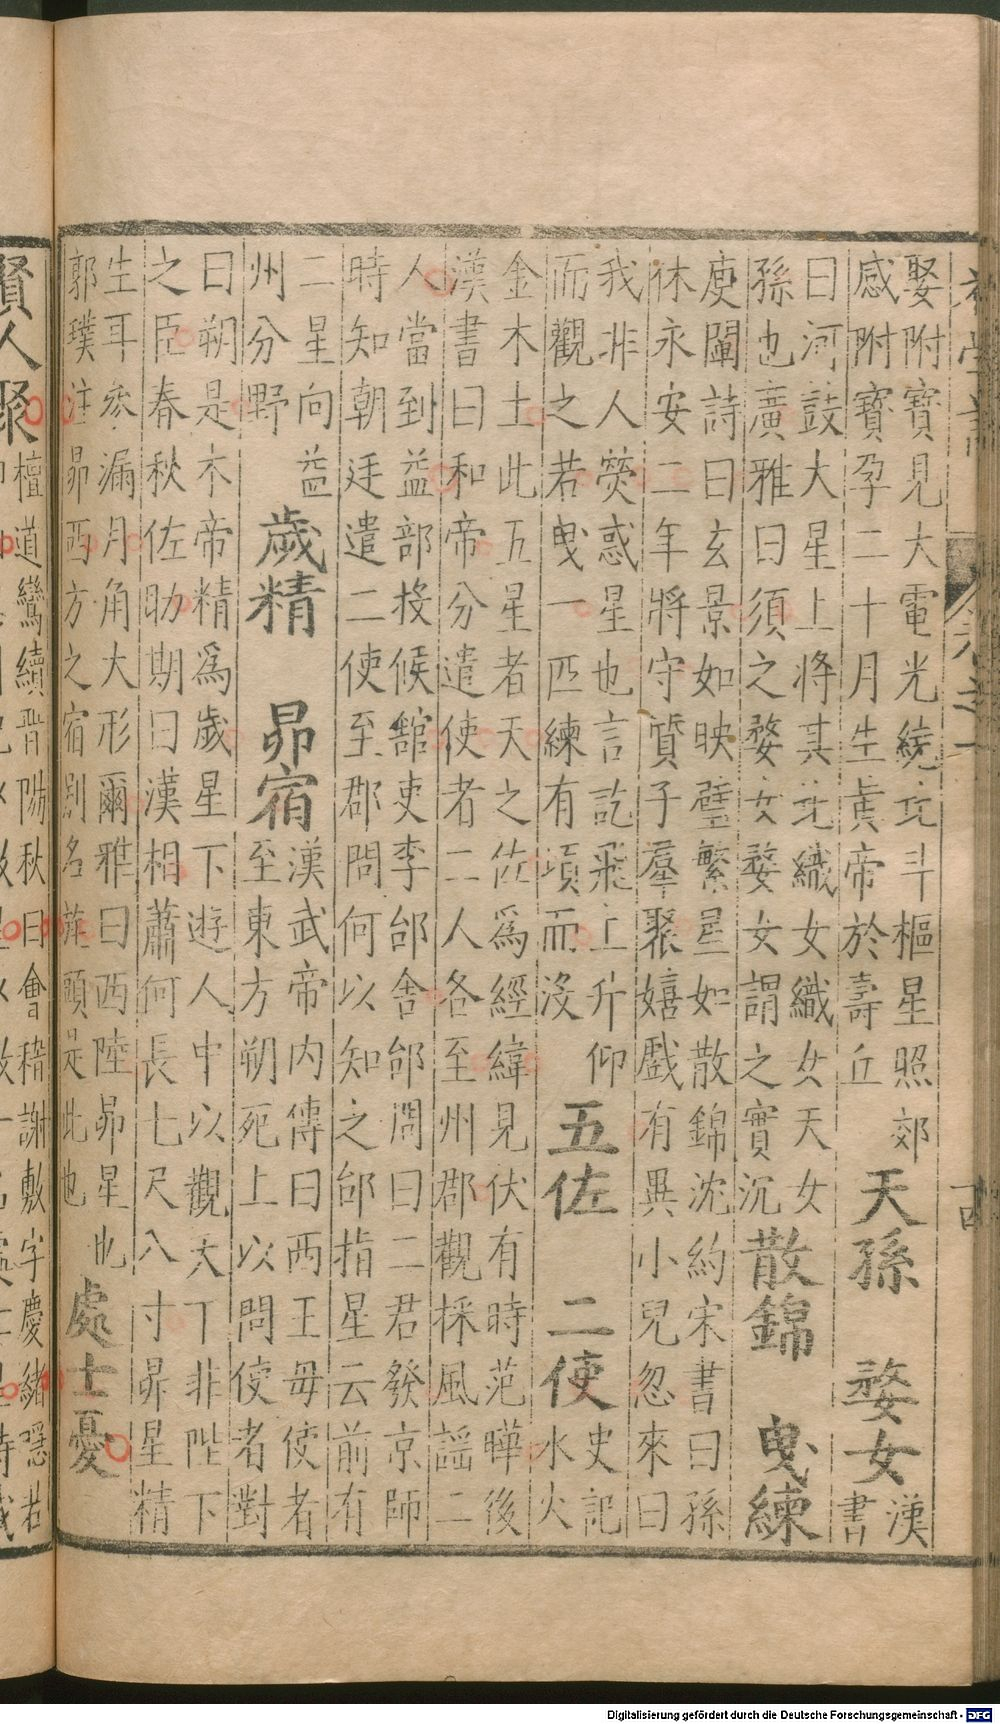 初學記 卷之一
娶附寶見大電光繞北斗樞星照郊
感附寶孕二十月生黃帝於壽丘
天孫 婺女
漢
書
曰河鼓大星上將其北織女織女天女
孫也廣雅曰須之婺女婺女謂之實沉
散錦 曳練
庾闡詩曰玄景如映璧繁星如散錦沈約宋書曰孫
休永安二年將守質子羣聚嬉戲有異小兒忽來曰
我非人熒惑星也言訖飛上升仰
而觀之若曳一匹練有頃而沒
五佐 二使
史記
水火
金木土此五星者天之佐爲經緯見伏有時范曄後
漢書曰和帝分遣使者二人各至州郡觀採風謠二
人當到益部投候館吏李郃舍郃問曰二君發京師
時知朝廷遣二使至郡問何以知之郃指星云前有
二星向益
州分野
歲精 昴宿
漢武帝内傳曰西王母使者
至東方朔死上以問使者對
曰朔是木帝精爲歲星下遊人中以觀天下非陛下
之臣春秋佐助期曰漢相蕭何長七尺八寸昴星精
生耳參漏月角大形爾雅曰西陸昴星也
郭璞注昴西方之宿別名旄頭是此也
處士憂
賢人聚
檀道鸞續晉陽秋曰會稽謝敷字慶緒隱若
Digitalisierung gefördert durch die Deutsche Forschungsgemeinschaft - DFG